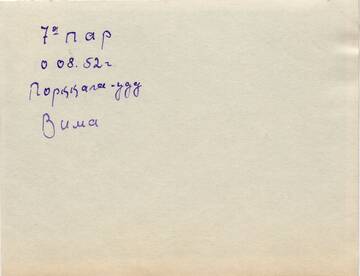 7ª пар
0 08.52г.
Порккала-удд
Вима